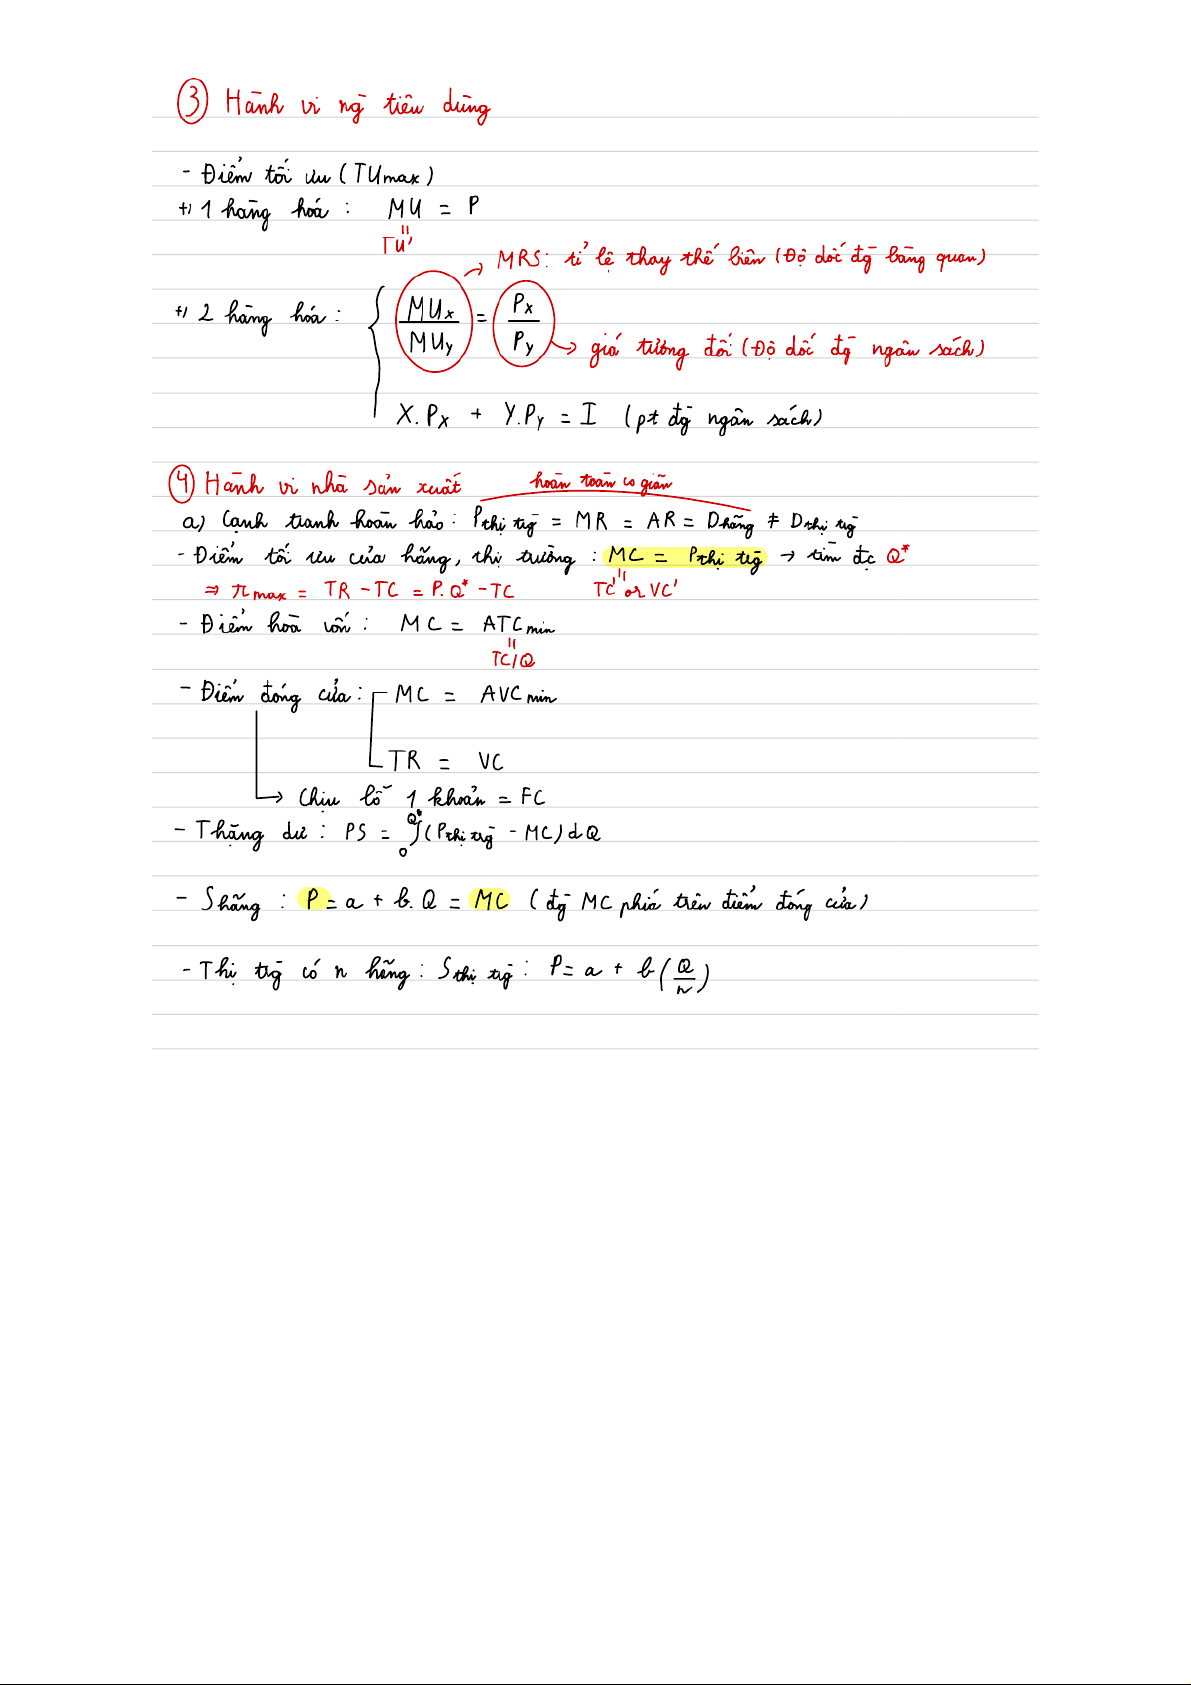 ③ Hành vi ng̀ tiêu dùng
- Điểm tối ưu (TUmax)
+) 1 hàng hóa : MU = P
TU'
MRS: tỉ lệ thay thế biên (Độ dốc đg̀ bàng quan)
+) 2 hàng hóa : MUx/MUy = Px/Py
giá tương đối (Độ dốc đg̀ ngân sách)
X.Px + Y.Py = I (pt đg̀ ngân sách)
④ Hành vi nhà sản xuất
hoàn toàn co giãn
a) Cạnh tranh hoàn hảo : Pthị trg̀ = MR = AR = Dhãng ≠ Dthị trg̀
- Điểm tối ưu của hãng, thị trường : MC = Pthị trg̀ → tìm đc Q*
⇒ πmax = TR - TC = P.Q* - TC TC' or VC'
- Điểm hoà vốn : MC = ATCmin
TC/Q
- Điểm đóng cửa : MC = AVCmin
TR = VC
→ Chịu lỗ 1 khoản = FC
- Thặng dư : PS = ∫₀^Q* (Pthị trg̀ - MC) dQ
- Shãng : P = a + b.Q = MC (đg̀ MC phía trên điểm đóng cửa)
- Thị trg̀ có n hãng : Sthị trg̀ : P = a + b (Q/n)